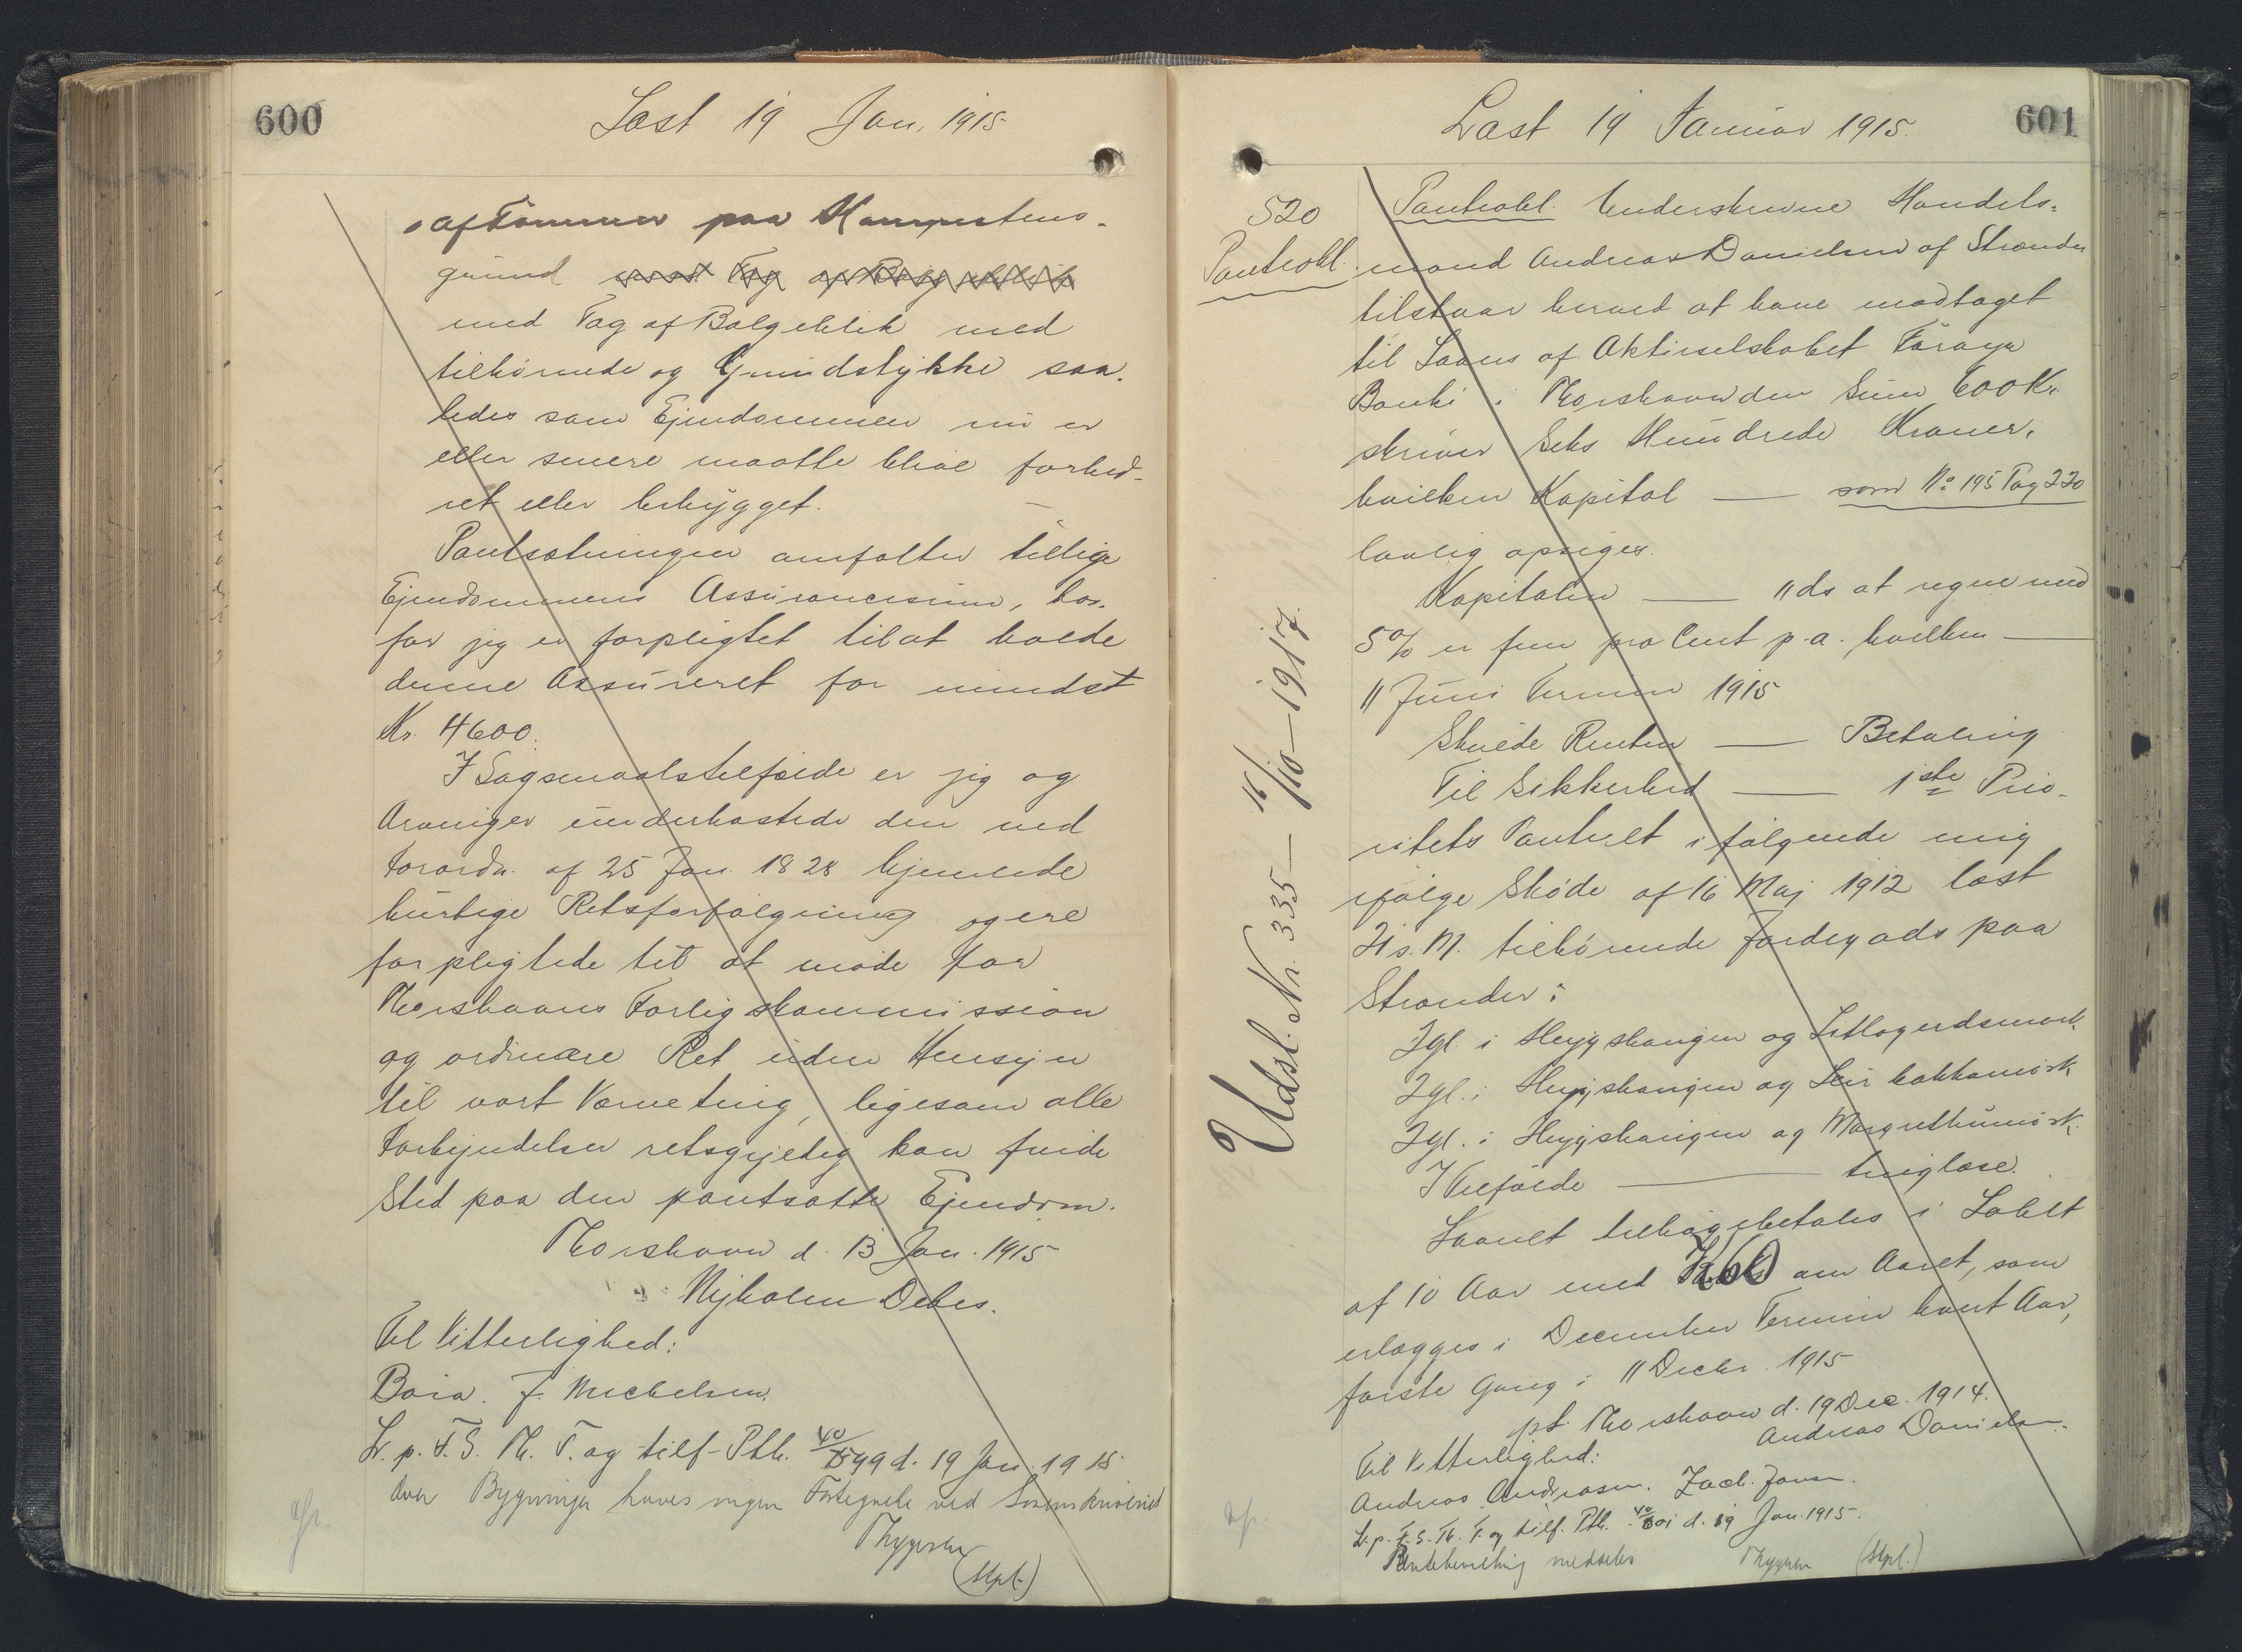 600
Læst 19 Jan. 1915
af Tømmer paa Kampestens-
grund
med Tag af Bølgeblik med
tilhørende og Grundstykke saa-
ledes som Ejendommen nu er
eller senere maatte blive forbed-
ret eller bebygget.
Pantsætningen omfatter tillige
Ejendommens Assurancesum, hvor-
for jeg er forpligtet til at holde
denne Assureret for mindst
Kr. 4600.
I Søgsmaalstilfælde er jeg og
Arvinger underkastede den ved
Forordn. af 25 Jan. 1828 hjemlede
hurtige Retsforfølgning og ere
forpligtede til at møde for
Thorshavns Forligskommission
og ordinære Ret uden Hensyn
til vort Værneting, ligesom alle
Forkyndelser retsgyldig kan finde
Sted paa den pantsatte Ejendom.
Thorshavn d. 13 Jan. 1915
Debes.
Til Vitterlighed:
J. Michelsen.
L. p. F. S. Th. T. og tilf. Ptb. 40/599 d. 19 Jan. 1915.
Over Bygninger haves ingen Fortegnelse ved Sorenskriveriet
Thygesen
(Stpl.)
Læst 19 Januar 1915.
601
520
Panteobl.
Panteobl. Underskrevne Handels-
mand Andreas Danielsen af Strænder
tilstaar herved at have modtaget
til Laans af Aktieselskabet Føroya
Banki i Thorshavn den Sum 600 Kr.
skriver Seks Hundrede Kroner,
hvilken Kapital — som No 195 Pag 220
lovlig opsiges.
Kapitalen — 11 ds at regne med
5% er fem pro Cent p. a. hvilken —
11 Juni Termin 1915
Skulde Renten — Betaling
Til Sikkerhed — 1ste Prio-
ritets Panteret i følgende mig
ifølge Skøde af 16 Maj 1912 læst
s. M. tilhørende Jordegods paa
Strænder:
2gl. i Heyggshangen og
2gl. i Heyggshangen og
2gl. i Heyggshangen og
I Tilfælde — tinglæse.
Laanet tilbagebetales i Løbet
af 10 Aar med K. 60 om Aaret, som
erlægges i December Termin hvert Aar,
første Gang i 11 Decbr. 1915
pt. Thorshavn d. 19 Dec. 1914.
Andreas Danielsen.
Til Vitterlighed:
Andreas Andreasen. Zach.
L. p. F. S. Th. T. og tilf. Ptb. 40/601 d. 19 Jan. 1915.
Rentebevilling meddeles Thygesen (Stpl.)
Udsl. Nr. 335 — 16/10 — 1917.